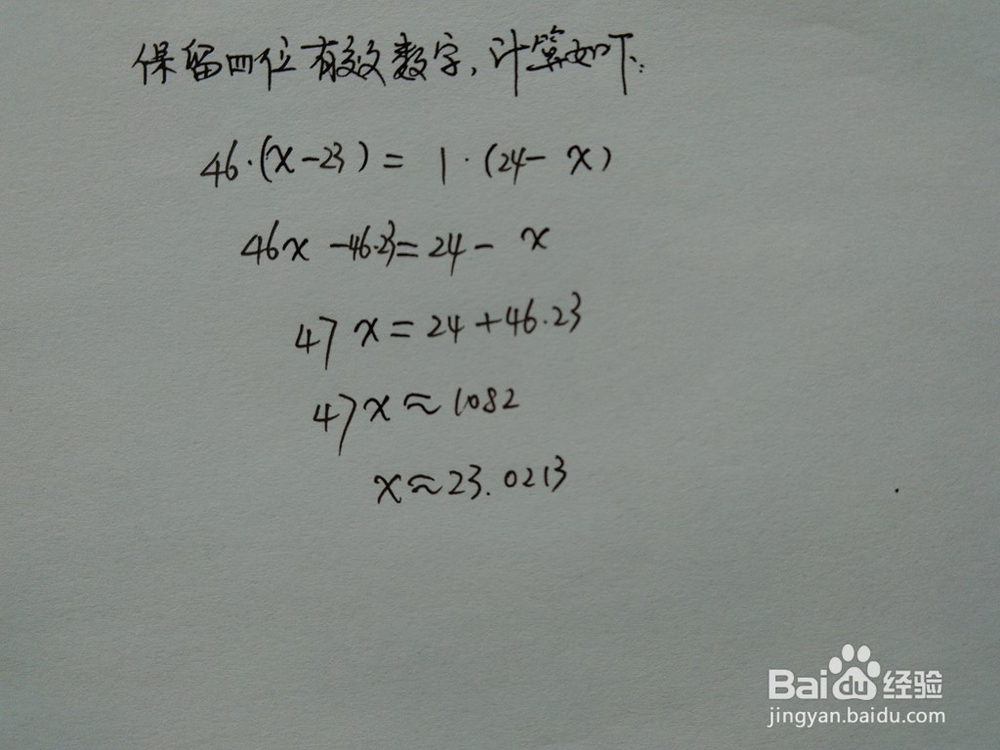 保留四位有效数字,计算如下:
46·(x-23)= 1·(24- x)
46x -46·23=24- x
47x=24+46·23
47x≈1082
x≈23.0213
Baidu经验
jingyan.baidu.com